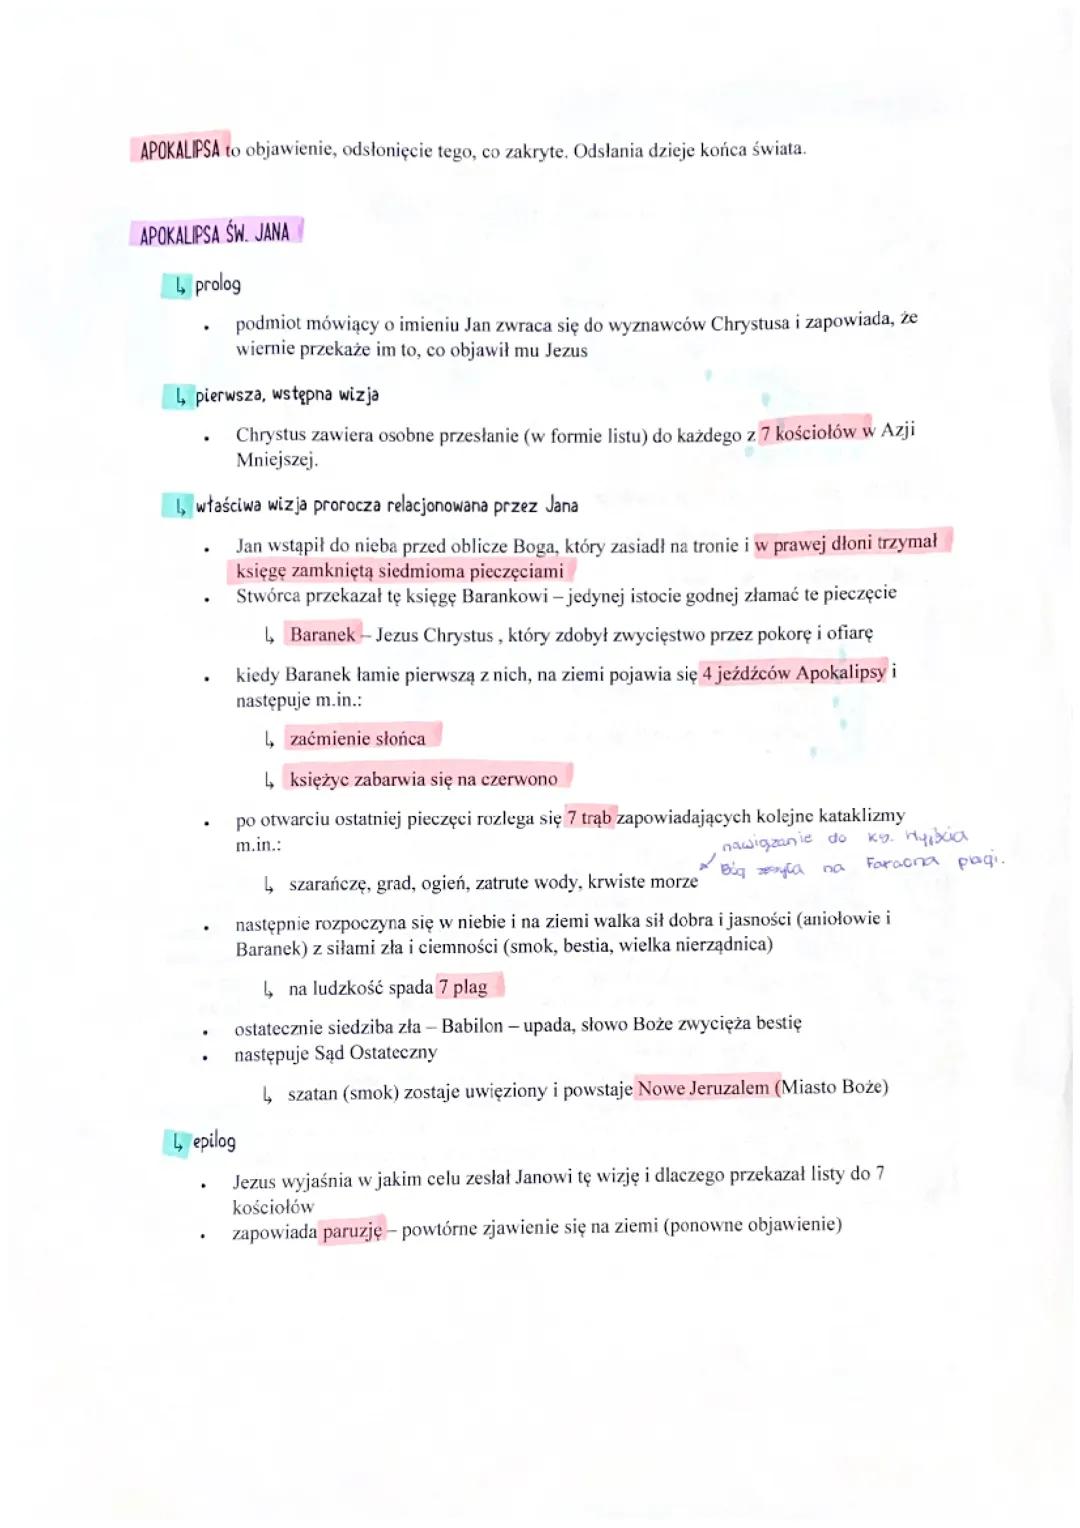 APOKALIPSA to objawienie, odsłonięcie tego, co zakryte. Odsłania dzieje końca świata.
APOKALIPSA ŚW. JANA
↳ prolog
• podmiot mówiący o imieniu Jan zwraca się do wyznawców Chrystusa i zapowiada, że
wiernie przekaże im to, co objawił mu Jezus
↳ pierwsza, wstępna wizja
• Chrystus zawiera osobne przesłanie (w formie listu) do każdego z 7 kościołów w Azji
Mniejszej.
↳ właściwa wizja prorocza relacjonowana przez Jana
• Jan wstąpił do nieba przed oblicze Boga, który zasiadł na tronie i w prawej dłoni trzymał
księgę zamkniętą siedmioma pieczęciami
• Stwórca przekazał tę księgę Barankowi – jedynej istocie godnej złamać te pieczęcie
↳ Baranek – Jezus Chrystus , który zdobył zwycięstwo przez pokorę i ofiarę
• kiedy Baranek łamie pierwszą z nich, na ziemi pojawia się 4 jeźdźców Apokalipsy i
następuje m.in.:
↳ zaćmienie słońca
↳ księżyc zabarwia się na czerwono
• po otwarciu ostatniej pieczęci rozlega się 7 trąb zapowiadających kolejne kataklizmy
m.in.:
nawiązanie do ks. Wyjścia
Bóg zesyła na Faraona plagi.
↳ szarańczę, grad, ogień, zatrute wody, krwiste morze
• następnie rozpoczyna się w niebie i na ziemi walka sił dobra i jasności (aniołowie i
Baranek) z siłami zła i ciemności (smok, bestia, wielka nierządnica)
↳ na ludzkość spada 7 plag
• ostatecznie siedziba zła – Babilon – upada, słowo Boże zwycięża bestię
• następuje Sąd Ostateczny
↳ szatan (smok) zostaje uwięziony i powstaje Nowe Jeruzalem (Miasto Boże)
↳ epilog
• Jezus wyjaśnia w jakim celu zesłał Janowi tę wizję i dlaczego przekazał listy do 7
kościołów
• zapowiada paruzję – powtórne zjawienie się na ziemi (ponowne objawienie)